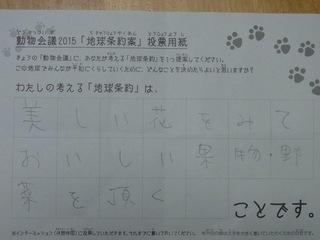 動物会議2015「地球条約案」投票用紙
キョウの「動物会議」に、あなたが考える「地球条約」を1つ提案してください。
この地球でみんなが平和にくらしていくために、どんなことを決めたらよいと思いますか?
わたしの考える「地球条約」は、
美しい花をみて
おいしい果物・野
菜を頂く
ことです。